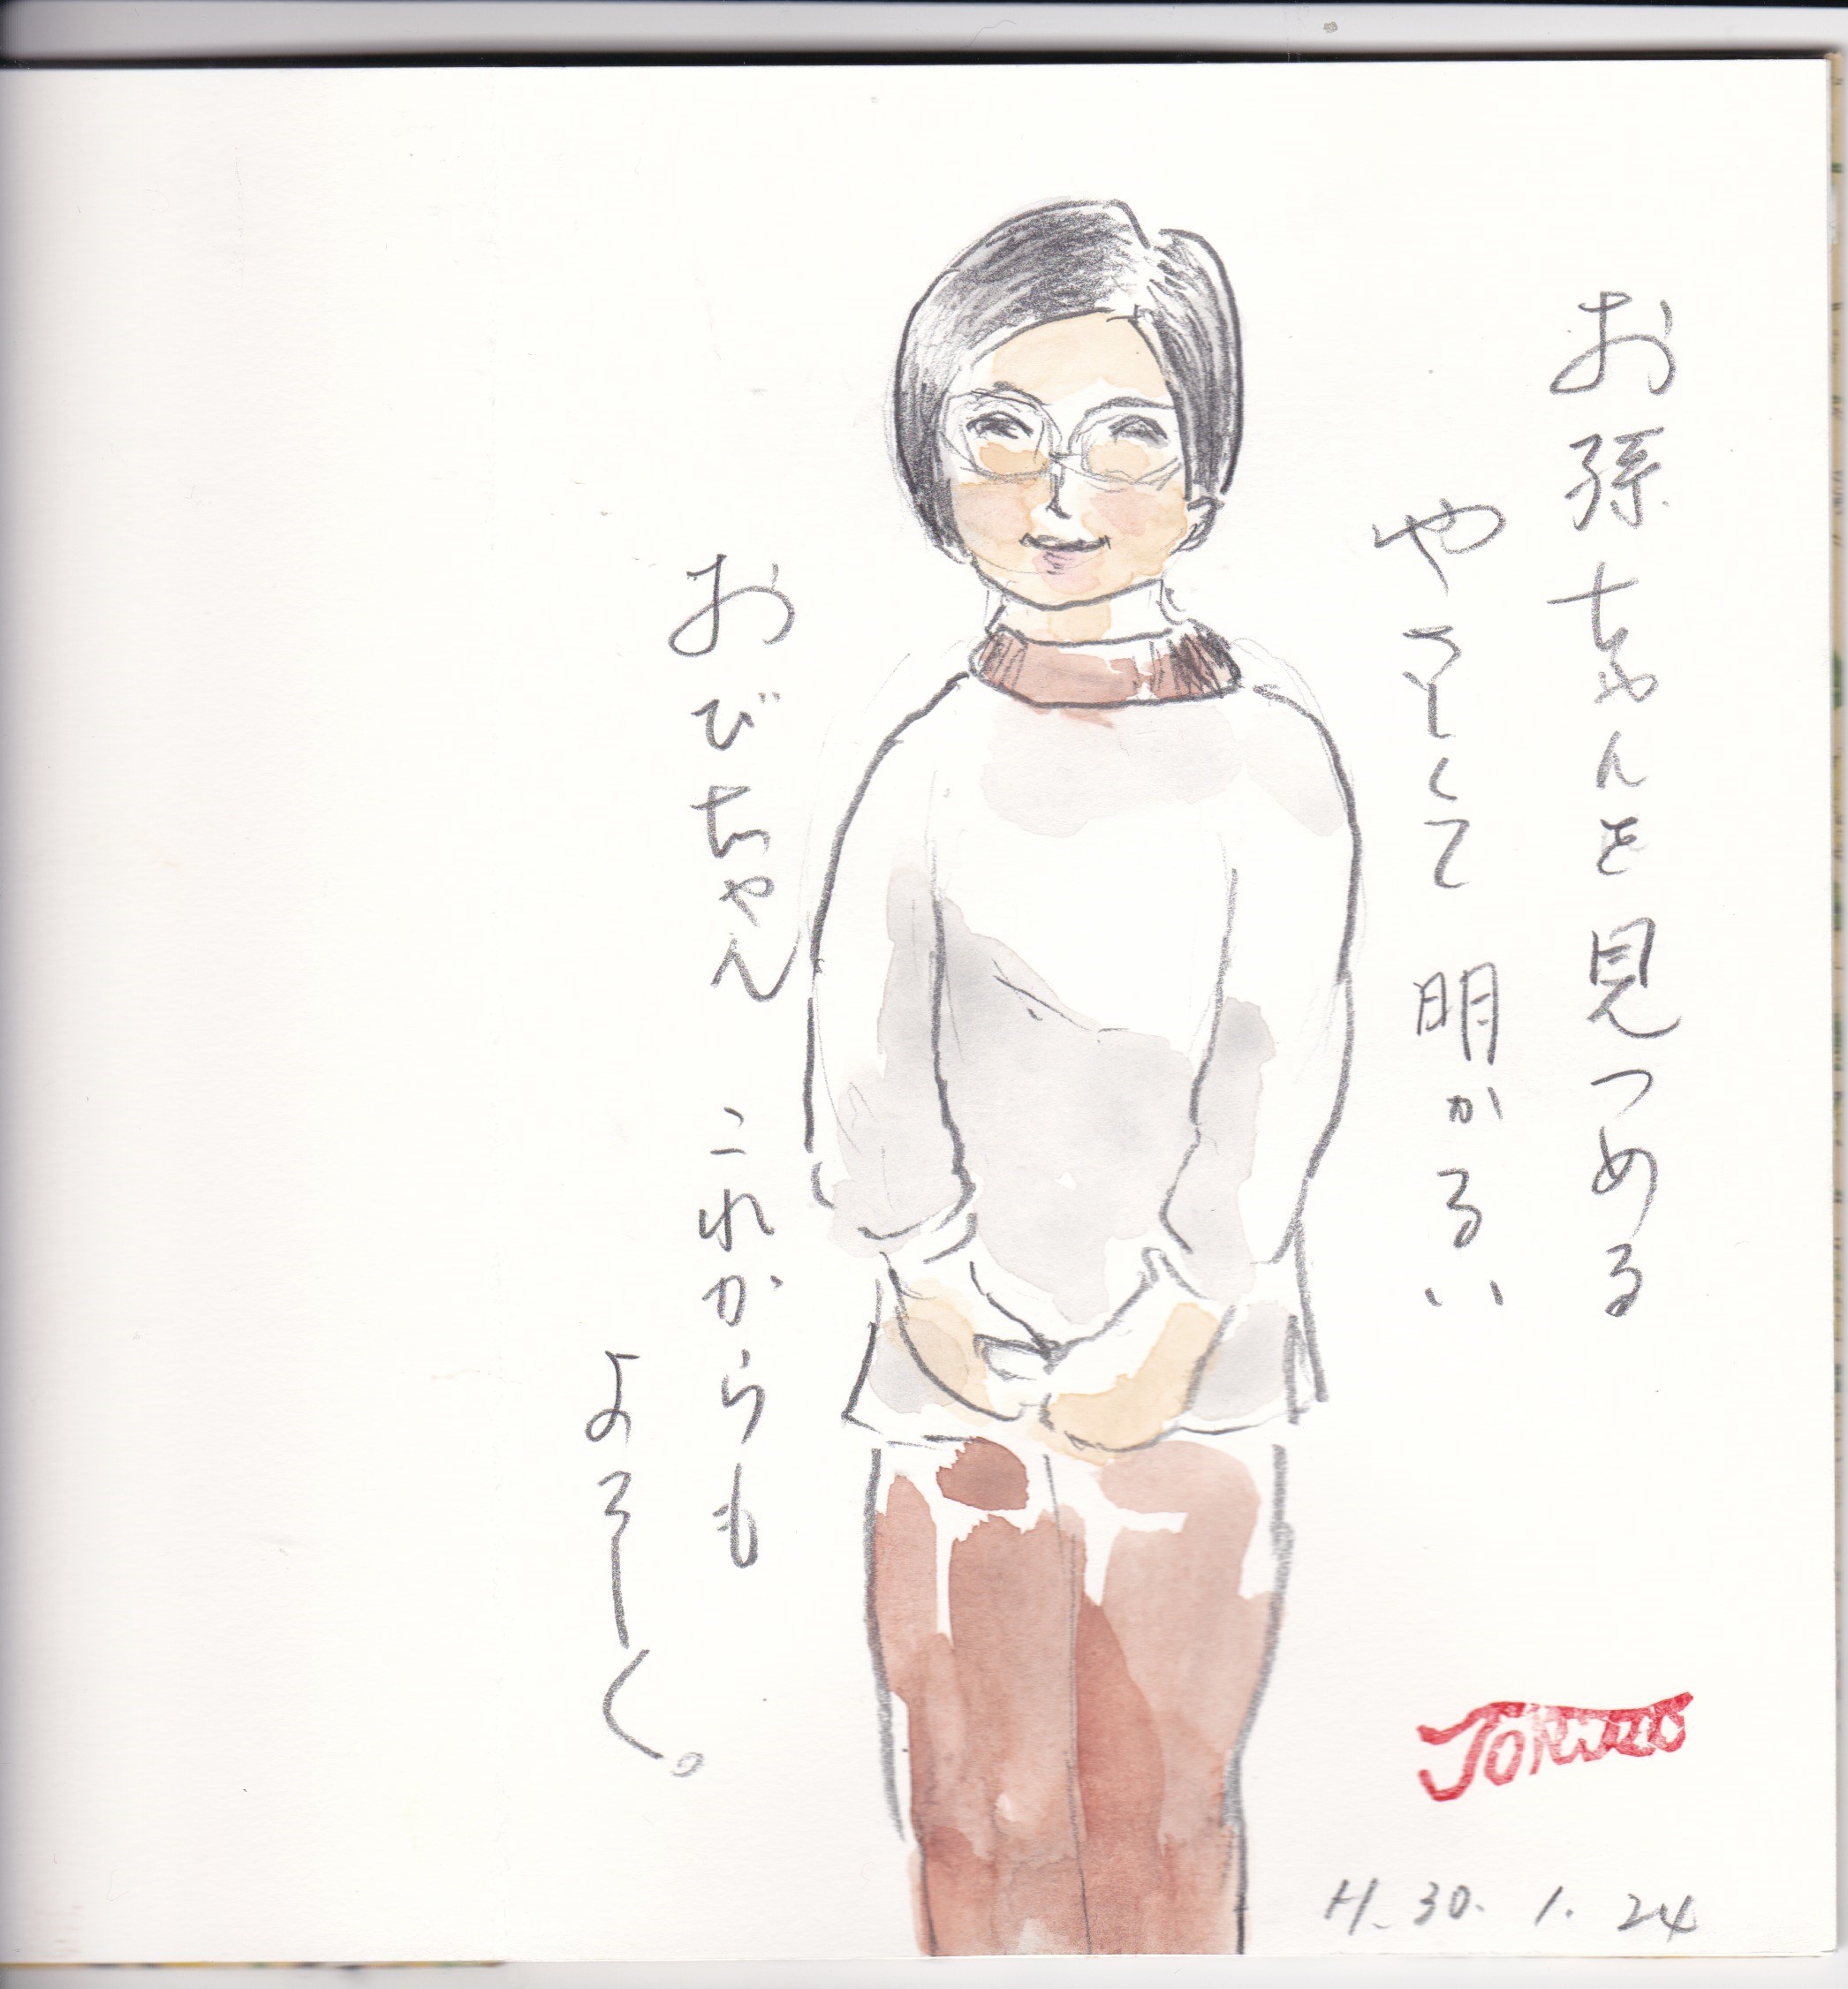 お孫ちゃんを見つめる
やさしくて 明かるい
おびちゃん これからも
よろしく。
H.30.1.24